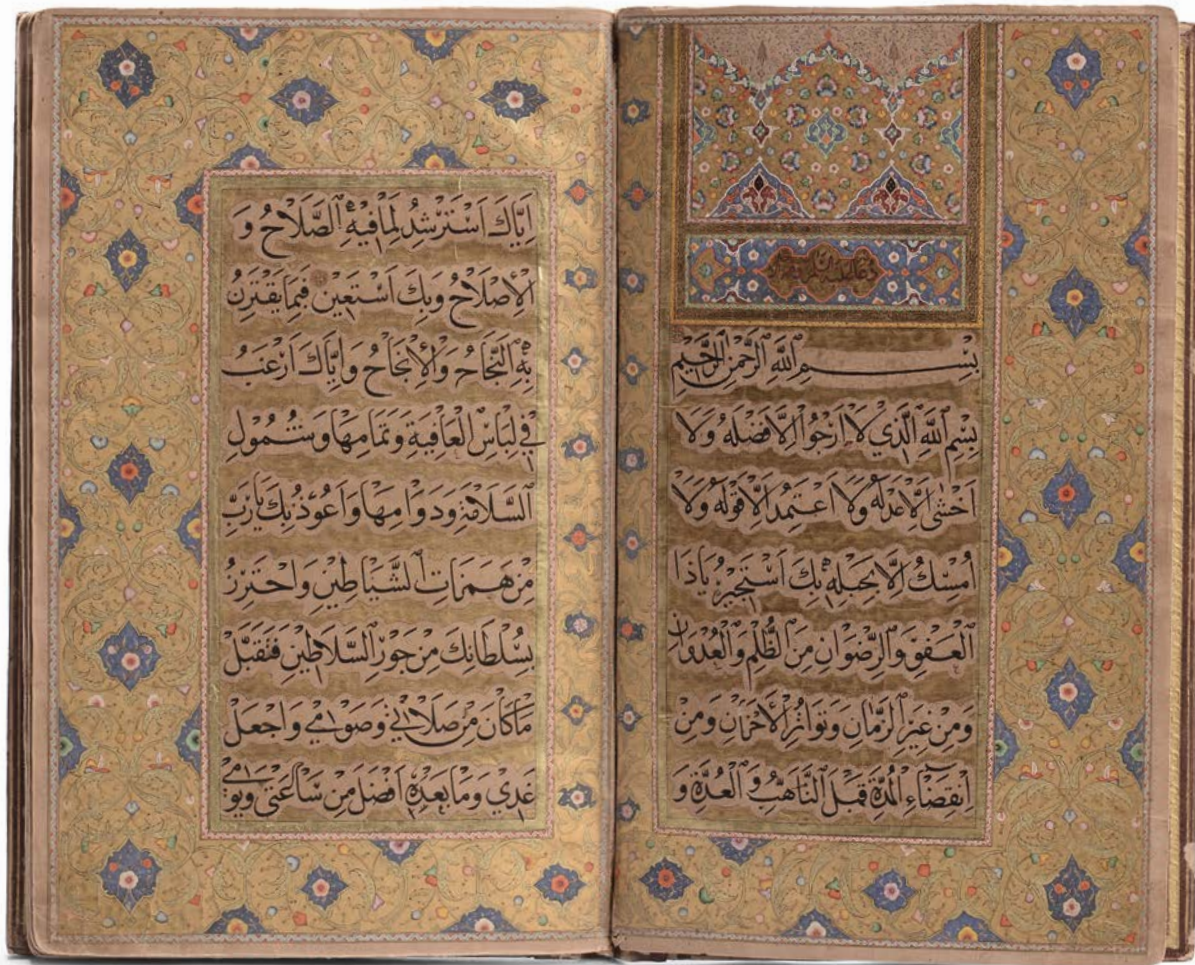 بِسْمِ اللَّهِ الرَّحْمٰنِ الرَّحِيمِ
بِسْمِ اللَّهِ الَّذِي لَا اَرْجُو اِلَّا فَضْلَهُ وَلَا
اَخْشٰى اِلَّا عَدْلَهُ وَلَا اَعْتَمِدُ اِلَّا قَوْلَهُ وَلَا
اُمْسِكُ اِلَّا بِحَبْلِهِ بِكَ اَسْتَجِيرُ يَاذَا
الْعَفْوِ وَالرِّضْوَانِ مِنَ الظُّلْمِ وَالْعُدْوَانِ
وَمِنْ غِيَرِ الزَّمَانِ وَتَوَاتُرِ الْاَحْزَانِ وَمِنِ
انْقِضَاءِ الْمُدَّةِ قَبْلَ التَّاَهُّبِ وَالْعُدَّةِ وَ
اِيَّاكَ اَسْتَرْشِدُ لِمَا فِيهِ الصَّلَاحُ وَ
الْاِصْلَاحُ وَبِكَ اَسْتَعِينُ فِيمَا يَقْتَرِنُ
بِهِ النَّجَاحُ وَالْاِنْجَاحُ وَاِيَّاكَ اَرْغَبُ
فِي لِبَاسِ الْعَافِيَةِ وَتَمَامِهَا وَشُمُولِ
السَّلَامَةِ وَدَوَامِهَا وَاَعُوذُ بِكَ يَارَبِّ
مِنْ هَمَزَاتِ الشَّيَاطِينِ وَاَحْتَرِزُ
بِسُلْطَانِكَ مِنْ جَوْرِ السَّلَاطِينِ فَتَقَبَّلْ
مَا كَانَ مِنْ صَلَاتِي وَصَوْمِي وَاجْعَلْ
غَدِي وَمَا بَعْدَهُ اَفْضَلَ مِنْ سَاعَتِي وَيَوْمِي